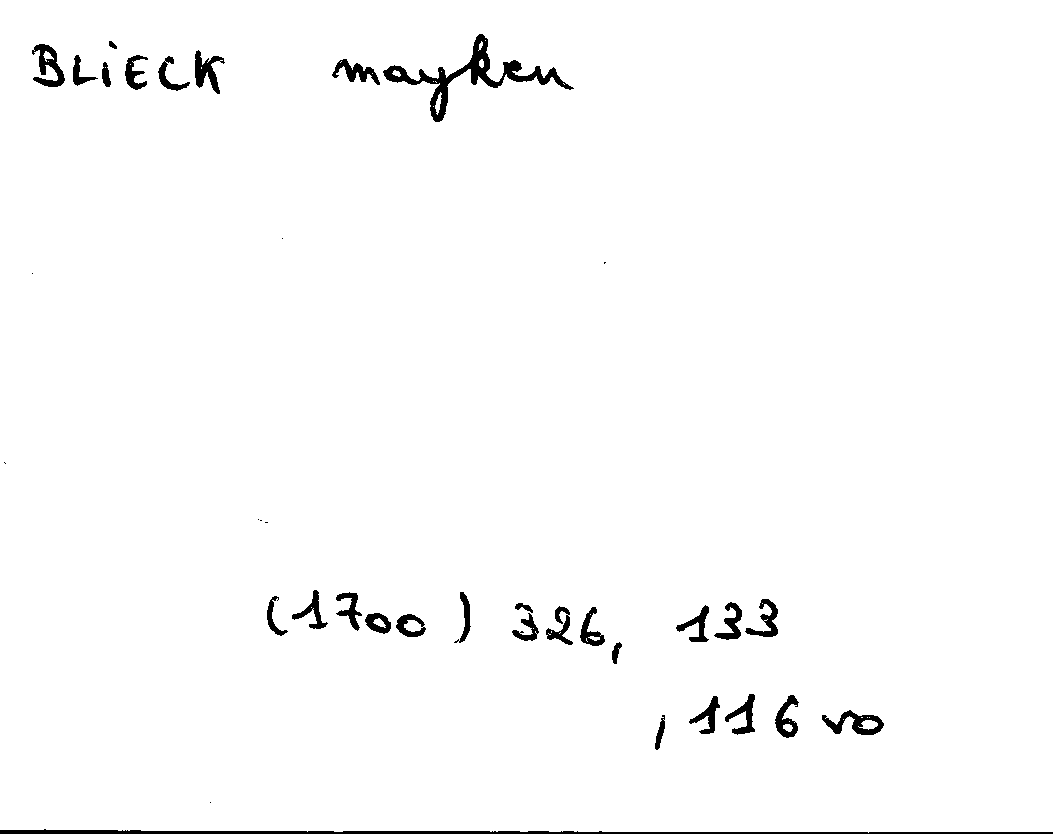 BLIECK mayken
(1700) 326, 133
, 116 vo